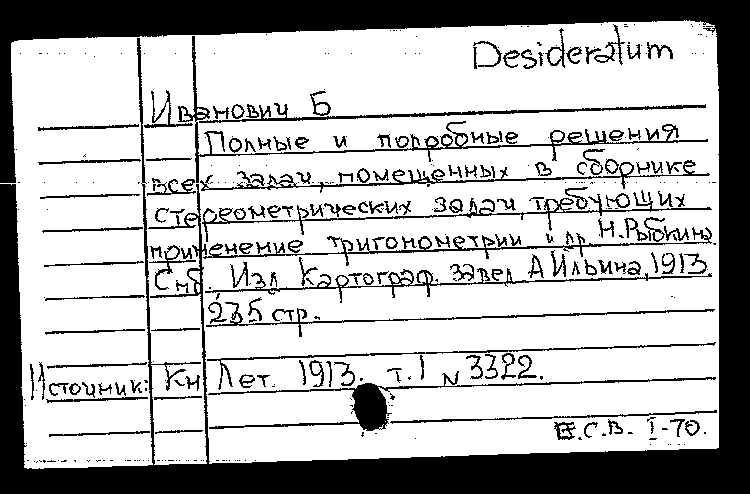 Desideratum
Иванович Б
Полные и подробные решения
всех задач, помещенных в сборнике
стереометрических задач, требующих
применение тригонометрии и др Н.Рыбкина
Спб. Изд Картограф. завед А Ильина, 1913.
235 стр.
Источник: Кн Лет. 1913. т.1 N 3322.
Е.С.В. I-70.